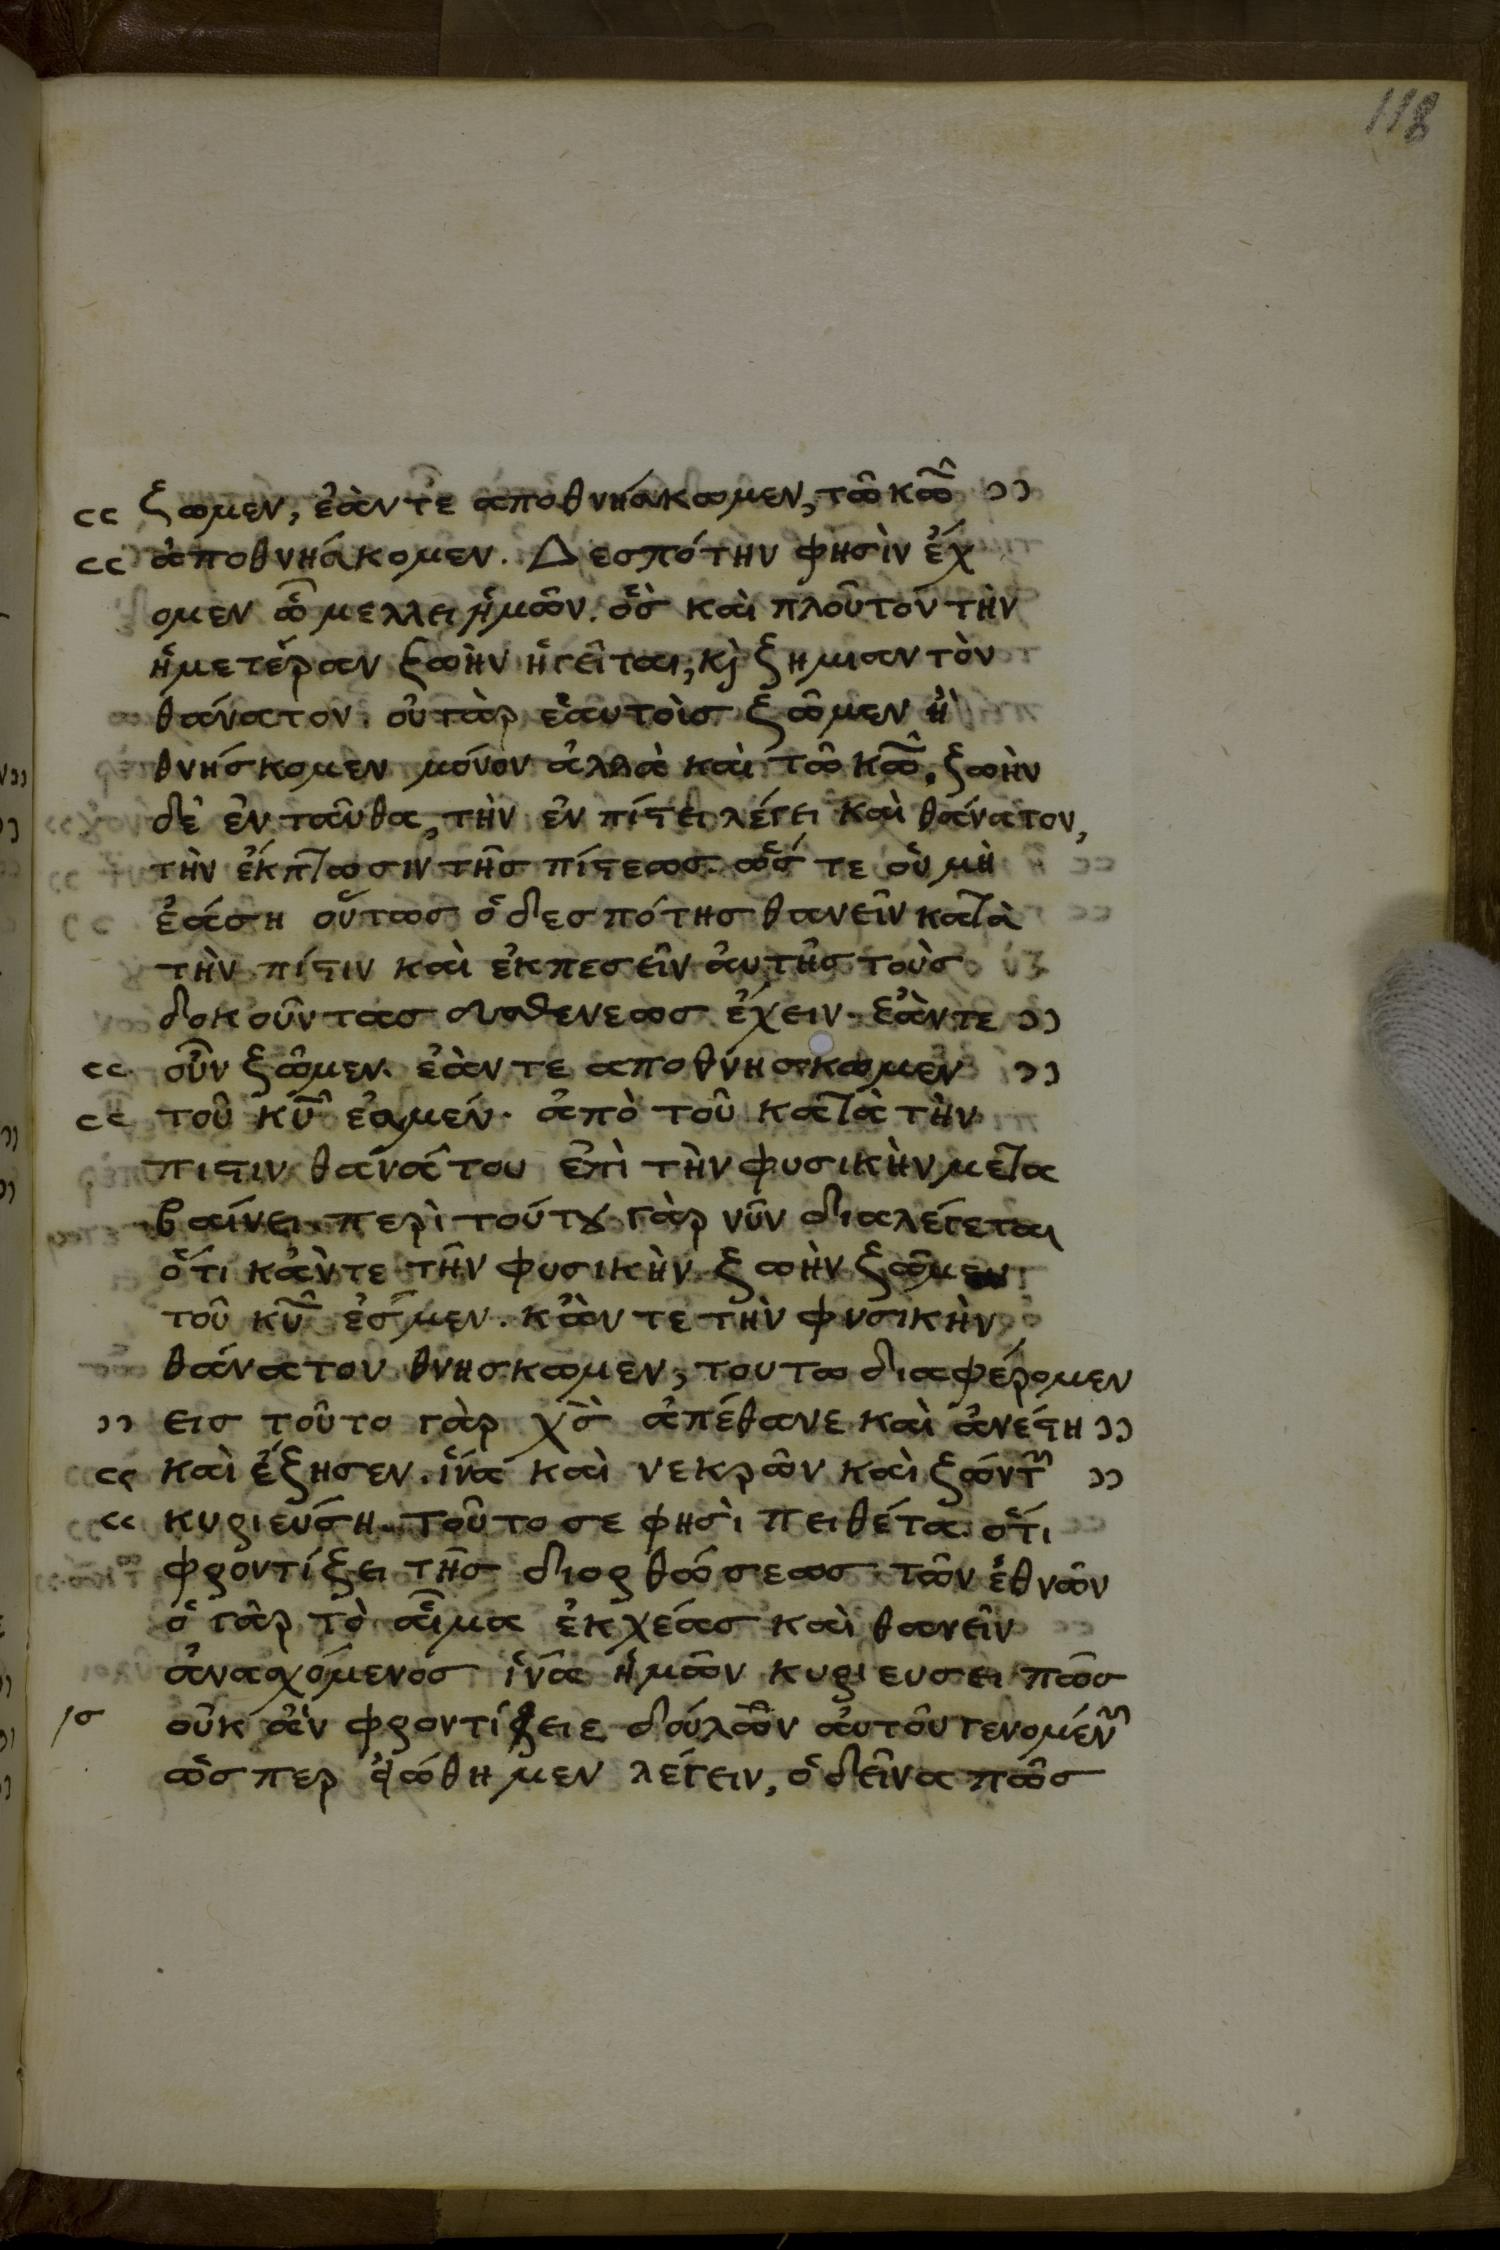 118
ζωμεν, ἐὰν τε αποθνήσκωμεν, τῶ κῶ
ἀποθνήσκομεν. Δεσπότην φησὶν ἐχ
ομεν ὧ μελλει ἡμῶν. ὃσ καὶ πλοῦτον τὴν
ἡμετέραν ζωὴν ἡγεῖται, κὶ ζημιαν τὸν
θάνατον. οὐ γὰρ ἑαυτοὶσ ζῶμεν ἢ
θνήσκομεν μόνον ἀλλὰ καὶ τῶ κῶ, ζωὴν
δὲ ἐν ταῦθα, τὴν ἐν πίστει λέγει καὶ θάνατον,
τὴν ἐκπτωσιν τῆσ πίστεωσ. ὥσ τε οὐ μὴ
ἐάση οὕτωσ ὁ δεσπότησ θανεῖν κατὰ
τὴν πίστιν καὶ ἐκπεσεῖν ἀυτῆσ τοὺσ
δοκοῦντασ ασθενεωσ ἔχειν. ἐὰν τε
οὖν ζῶμεν. ἐὰν τε αποθνησκωμεν
τοῦ κῦ ἐσμέν. ἀπὸ τοῦ κατὰ τὴν
πιστιν θανάτου ἐπὶ τὴν φυσικὴν μετα
βαίνει. περὶ τούτου γὰρ νῦν διαλέγεται
ὅτι κἀν τε τὴν φυσικὴν ζωὴν ζῶμεν
τοῦ κῦ ἐσμεν. κἀν τε τὴν φυσικὴν
θάνατον θνησκωμεν, τουτω διαφέρομεν
εισ τοῦτο γὰρ χσ ἀπέθανε καὶ ἀνέστη
καὶ ἔζησεν. ἵνα καὶ νεκρῶν καὶ ζώντ
κυριεύση. τοῦτο σε φησὶ πειθέτω. ὅτι
φροντίζει τῆσ διορθώσεωσ τῶν ἐθνῶν
ὁ γὰρ τὸ αἷμα ἐκχέασ καὶ θανεῖν
ἀνασχόμενοσ ἵνα ἡμῶν κυριευσει πῶσ
ισ οὐκ ἀν φροντίζειε δούλων ἀυτοῦ γενομέν
ὥσπερ εἰώθημεν λέγειν, ὁ δεῖνα πῶσ